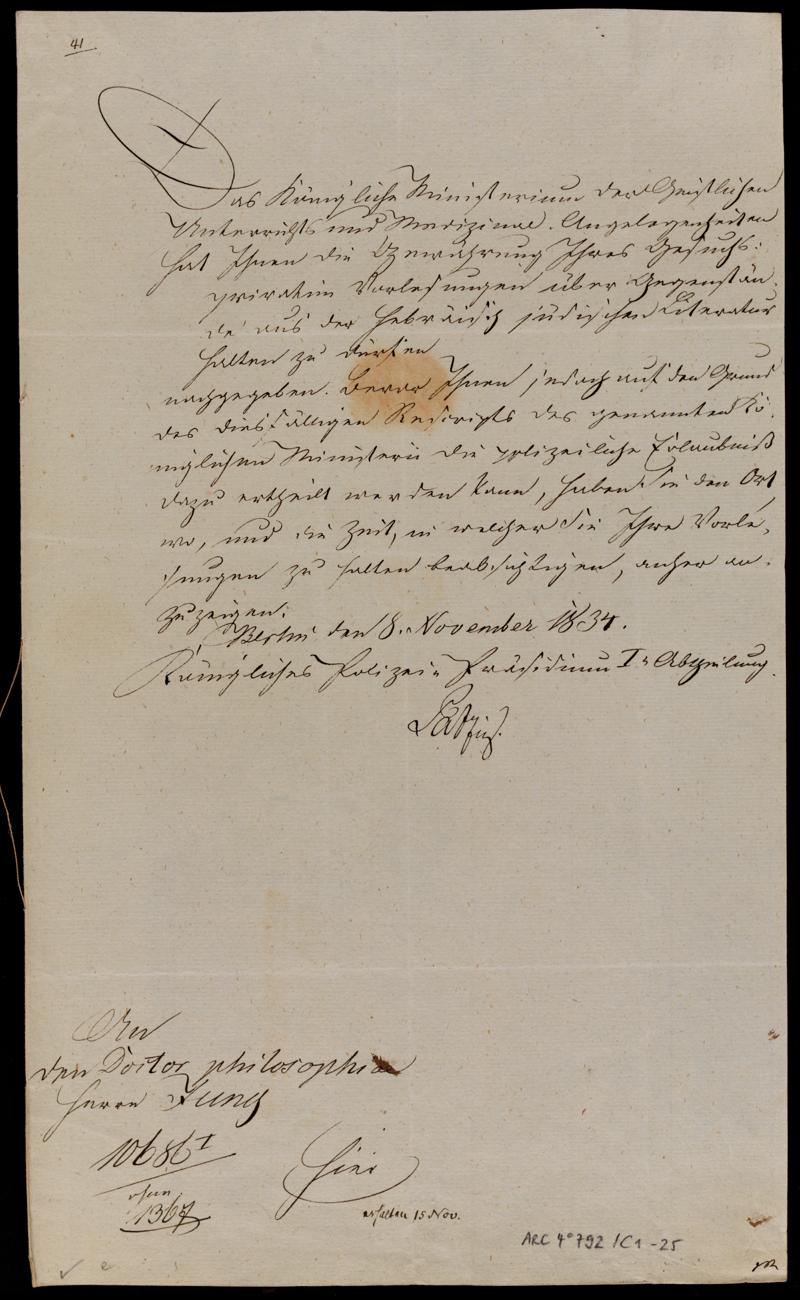 41
Das Königliche Ministerium der Geistlichen
Unterrichts und Medizinal. Angelegenheiten
hat Ihnen die Gewährung Ihres Gesuchs:
privatim Vorlesungen über Gegenstän-
de aus der hebräisch jüdischen Literatur
halten zu dürfen
nachgegeben. Bevor Ihnen jedoch auf den Grund
des diesfälligen Rescripts des genannten Kö-
niglichen Ministerii die polizeiliche Erlaubniß
dazu ertheilt werden kann, haben Sie den Ort
wo, und die Zeit, in welcher Sie Ihre Vorle-
sungen zu halten beabsichtigen, anher an-
zuzeigen.
Berlin den 8. November 1834.
Königliches Polizei-Präsidium I. Abtheilung
An
den Doctor philosophiae
Herrn Zunz
10686 I
1367
hier
erhalten 15 Nov.
ARC 4° 792 / C1-25